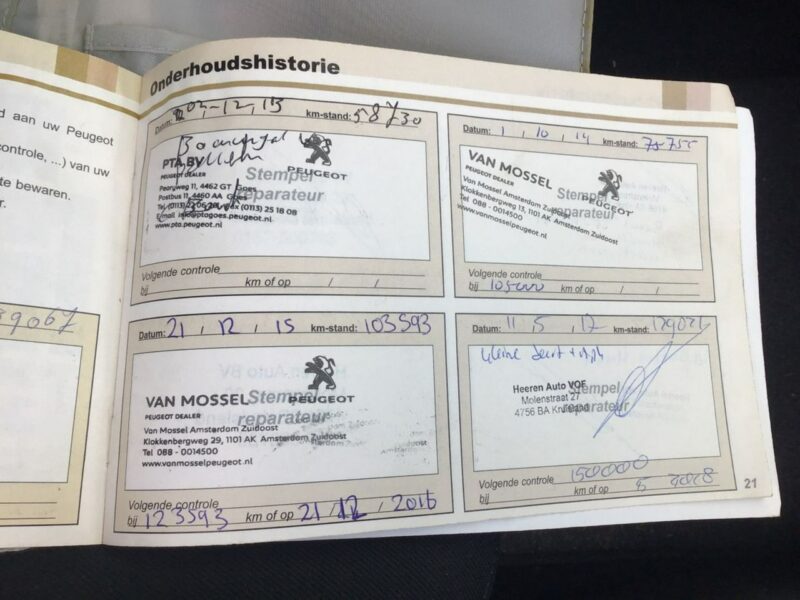 d aan uw Peugeot
controle, ...) van uw
te bewaren.
r.
39067
Onderhoudshistorie
Datum: 03-12-13 km-stand: 58730
PTA BV
PEUGEOT DEALER
PEUGEOT
Stempel
reparateur
Pearyweg 11, 4462 GT Goes
Postbus 11, 4460 AA Goes
Tel. (0113) 22 06 fax (0113) 25 18 08
E-mail info@ptagoes.peugeot.nl
www.pta.peugeot.nl
Volgende controle
bij km of op / /
Datum: 1, 10, 14 km-stand: 75755
VAN MOSSEL
PEUGEOT DEALER
Stempel
reparateur
PEUGEOT
Van Mossel Amsterdam Zuidoost
Klokkenbergweg 13, 1101 AK Amsterdam Zuidoost
Tel 088 - 0014500
www.vanmosselpeugeot.nl
Volgende controle
bij 105000 km of op / /
Datum: 21, 12, 15 km-stand: 103593
VAN MOSSEL
PEUGEOT DEALER
Stempel
reparateur
PEUGEOT
Van Mossel Amsterdam Zuidoost
Klokkenbergweg 29, 1101 AK Amsterdam Zuidoost
Tel 088 - 0014500
www.vanmosselpeugeot.nl
Volgende controle
bij 123593 km of op 21 / 12 / 2016
Datum: 11, 5, 17 km-stand:
kleine beurt + apk
Heeren Auto VOF
Stempel
reparateur
Molenstraat 27
4756 BA Kruisland
Volgende controle 150000
bij km of op 5 2018
21